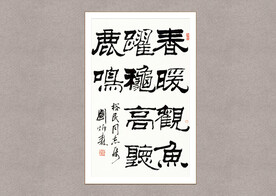 春暖觀魚
躍龝高聽
鹿鳴
裕民同志
劉炳森